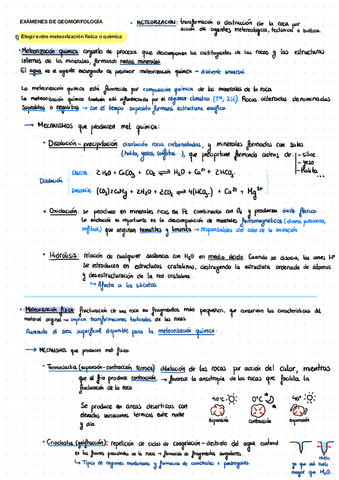 EXÁMENES DE GEOMORFOLOGÍA
• METEORIZACIÓN: transformación o destrucción de la roca por
acción de agentes meteorológicos, tectónicos o bióticos.
Elegir entre meteorización física o química
• Meteorización química: conjunto de procesos que descomponen los constituyentes de las rocas y las estructuras
internas de los minerales, formando nuevos minerales.
El agua es el agente encargado de producir meteorización química → disolvente universal
La meteorización química está favorecida por composición química de los minerales de la roca
La meteorización química también está influenciada por el régimen climático (Tª, H). Rocas alteradas denominadas
Saprolitos o regolitos → con el tiempo saprolito formará estructura edáfica
→ MECANISMOS que producen met. química:
• Disolución - precipitación disolución rocas carbonatadas, y minerales formados con sales
(halita, yesos, sulfatos), que precipitan formando costras de - sílice
- yeso
- Halita...
Disolución
CALCITA: 2H₂O + CaCO₃ + CO₂ ⇌ H₂O + Ca²⁺ + 2HCO₃⁻
DOLOMÍA: (CO₃)₂CaMg + 2H₂O + 2CO₂ ⇌ 4(HCO₃⁻) + Ca²⁺ + Mg²⁺
• Oxidación: se produce en minerales ricos en Fe combinados con O₂ y producen óxido férrico
La oxidación es importante en la descomposición de minerales ferromagnéticos (olivino, piroxeno,
anfíbol) que engloban hematites y limonita → responsables del color de la oxidación
• Hidrólisis: relación de cualquier sustancia con H₂O en medio ácido. Cuando se disocia, los iones H⁺
se introducen en estructuras cristalinas, destruyendo la estructura ordenada de átomos
y desestructuración de la red cristalina
↳ Afecta a los silicatos
• Meteorización física: fracturación de una roca en fragmentos más pequeños, que conservan las características del
material original → implica transformaciones texturales de las rocas.
Aumenta el área superficial disponible para la meteorización química.
→ MECANISMOS que producen met. física:
• Termoclastia (expansión-contracción térmica): dilatación de las rocas por acción del calor, mientras
que el frío produce contracción → favorece la anisotropía de las rocas que facilita la
fracturación de la roca
Se produce en áreas desérticas con
elevadas variaciones térmicas entre noche
y día.
40°C 0°C 40°
expansión contracción expansión
• Crioclastia (gelifracción): repetición de ciclos de congelación - deshielo del agua contenida
en las fisuras peniales de la roca → formación de fragmentos angulares.
↳ Típico de regiones montañosas y formación de canchales y pedregales.
Hielo
ya que vol. hielo
mayor que H₂O.